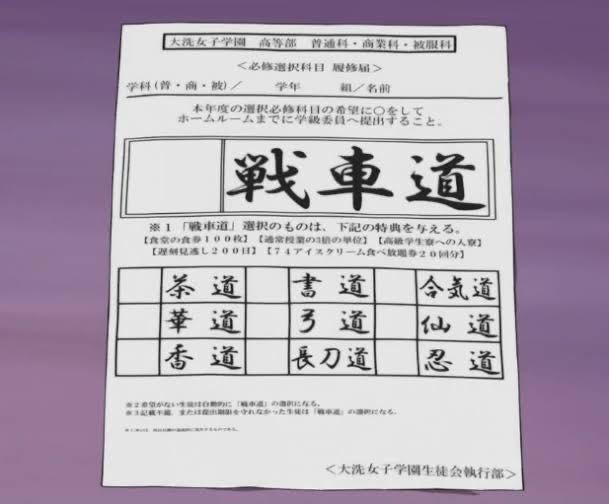 大洗女子学園　高等部　普通科・商業科・被服科
＜必修選択科目 履修届＞
学科(普・商・被)／　　学年　　組／名前
本年度の選択必修科目の希望に○をして
ホームルームまでに学級委員へ提出すること。
戦車道
※１「戦車道」選択のものは、下記の特典を与える。
【食堂の食券１００枚】【通常授業の3倍の単位】【高級学生寮への入寮】
【遅刻見逃し２００日】【７４アイスクリーム食べ放題券２０回分】
茶道　書道　合気道
華道　弓道　仙道
香道　長刀道　忍道
※２希望がない生徒は自動的に「戦車道」の選択になる。
※３記載不備、または提出期限を守れなかった生徒は「戦車道」の選択になる。
＜大洗女子学園生徒会執行部＞